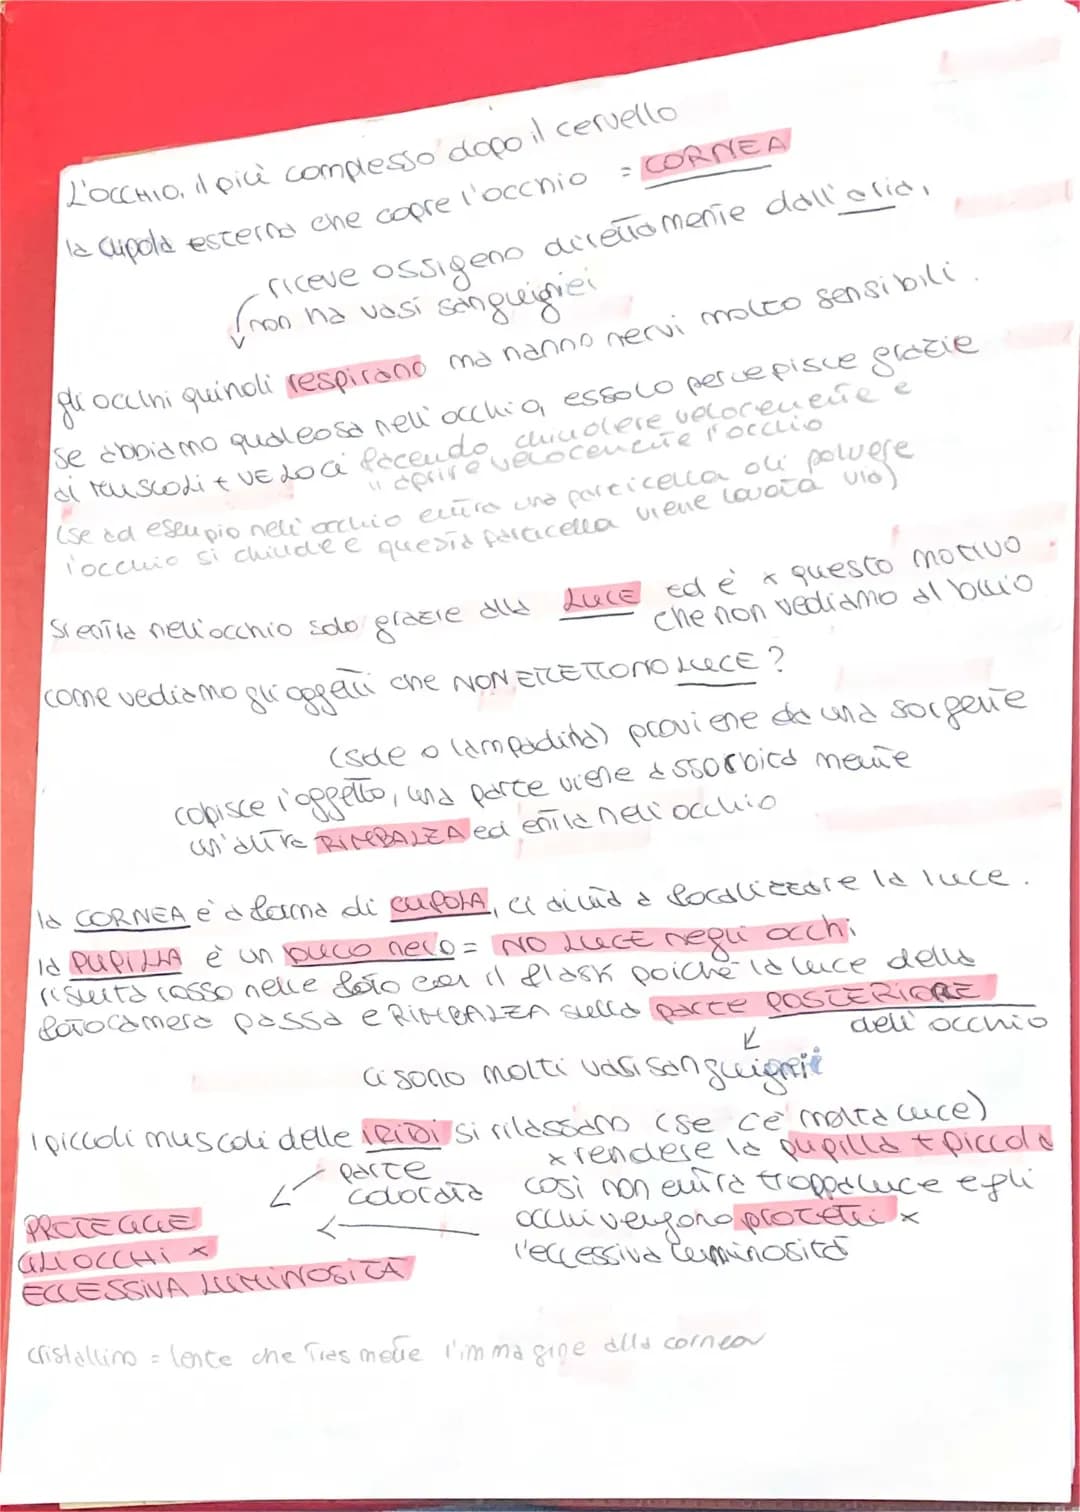 L'OCCHIO, il più complesso dopo il cervello
la cupola esterna che copre l'occhio = CORNEA
riceve ossigeno direttamente dall'aria,
non ha vasi sanguigniei
gli occhi quindi respirano ma hanno nervi molto sensibili.
se abbiamo qualcosa nell'occhio, esso lo percepisce grazie
ai muscoli + VELOCI facendo chiudere velocemente e
" aprire velocemente l'occhio
(se ad esempio nell'occhio entra una particella di polvere
l'occhio si chiude e questa particella viene lavata via)
Si entra nell'occhio solo grazie alla LUCE ed è x questo motivo
che non vediamo al buio
come vediamo gli oggetti che NON EMETTONO LUCE?
(sole o lampadina) proviene da una sorgente
colpisce l'oggetto, una parte viene assorbita mentre
un'altra RIMBALZA ed entra nell'occhio
la CORNEA è a forma di CUPOLA, ci aiuta a focalizzare la luce.
la PUPILLA è un buco nero = NO LUCE negli occhi
risulta rosso nelle foto con il flash poichè la luce della
fotocamera passa e RIMBALZA sulla parte POSTERIORE
dell'occhio
ci sono molti vasi sanguigni
I piccoli muscoli delle IRIDI si rilassano (se c'è molta luce)
x rendere la pupilla + piccola
parte
colorata
così non entra troppa luce e gli
occhi vengono protetti x
l'eccessiva luminosità
PROTEGGE
GLI OCCHI x
ECCESSIVA LUMINOSITÀ
cristallino = lente che trasmette l'immagine alla cornea